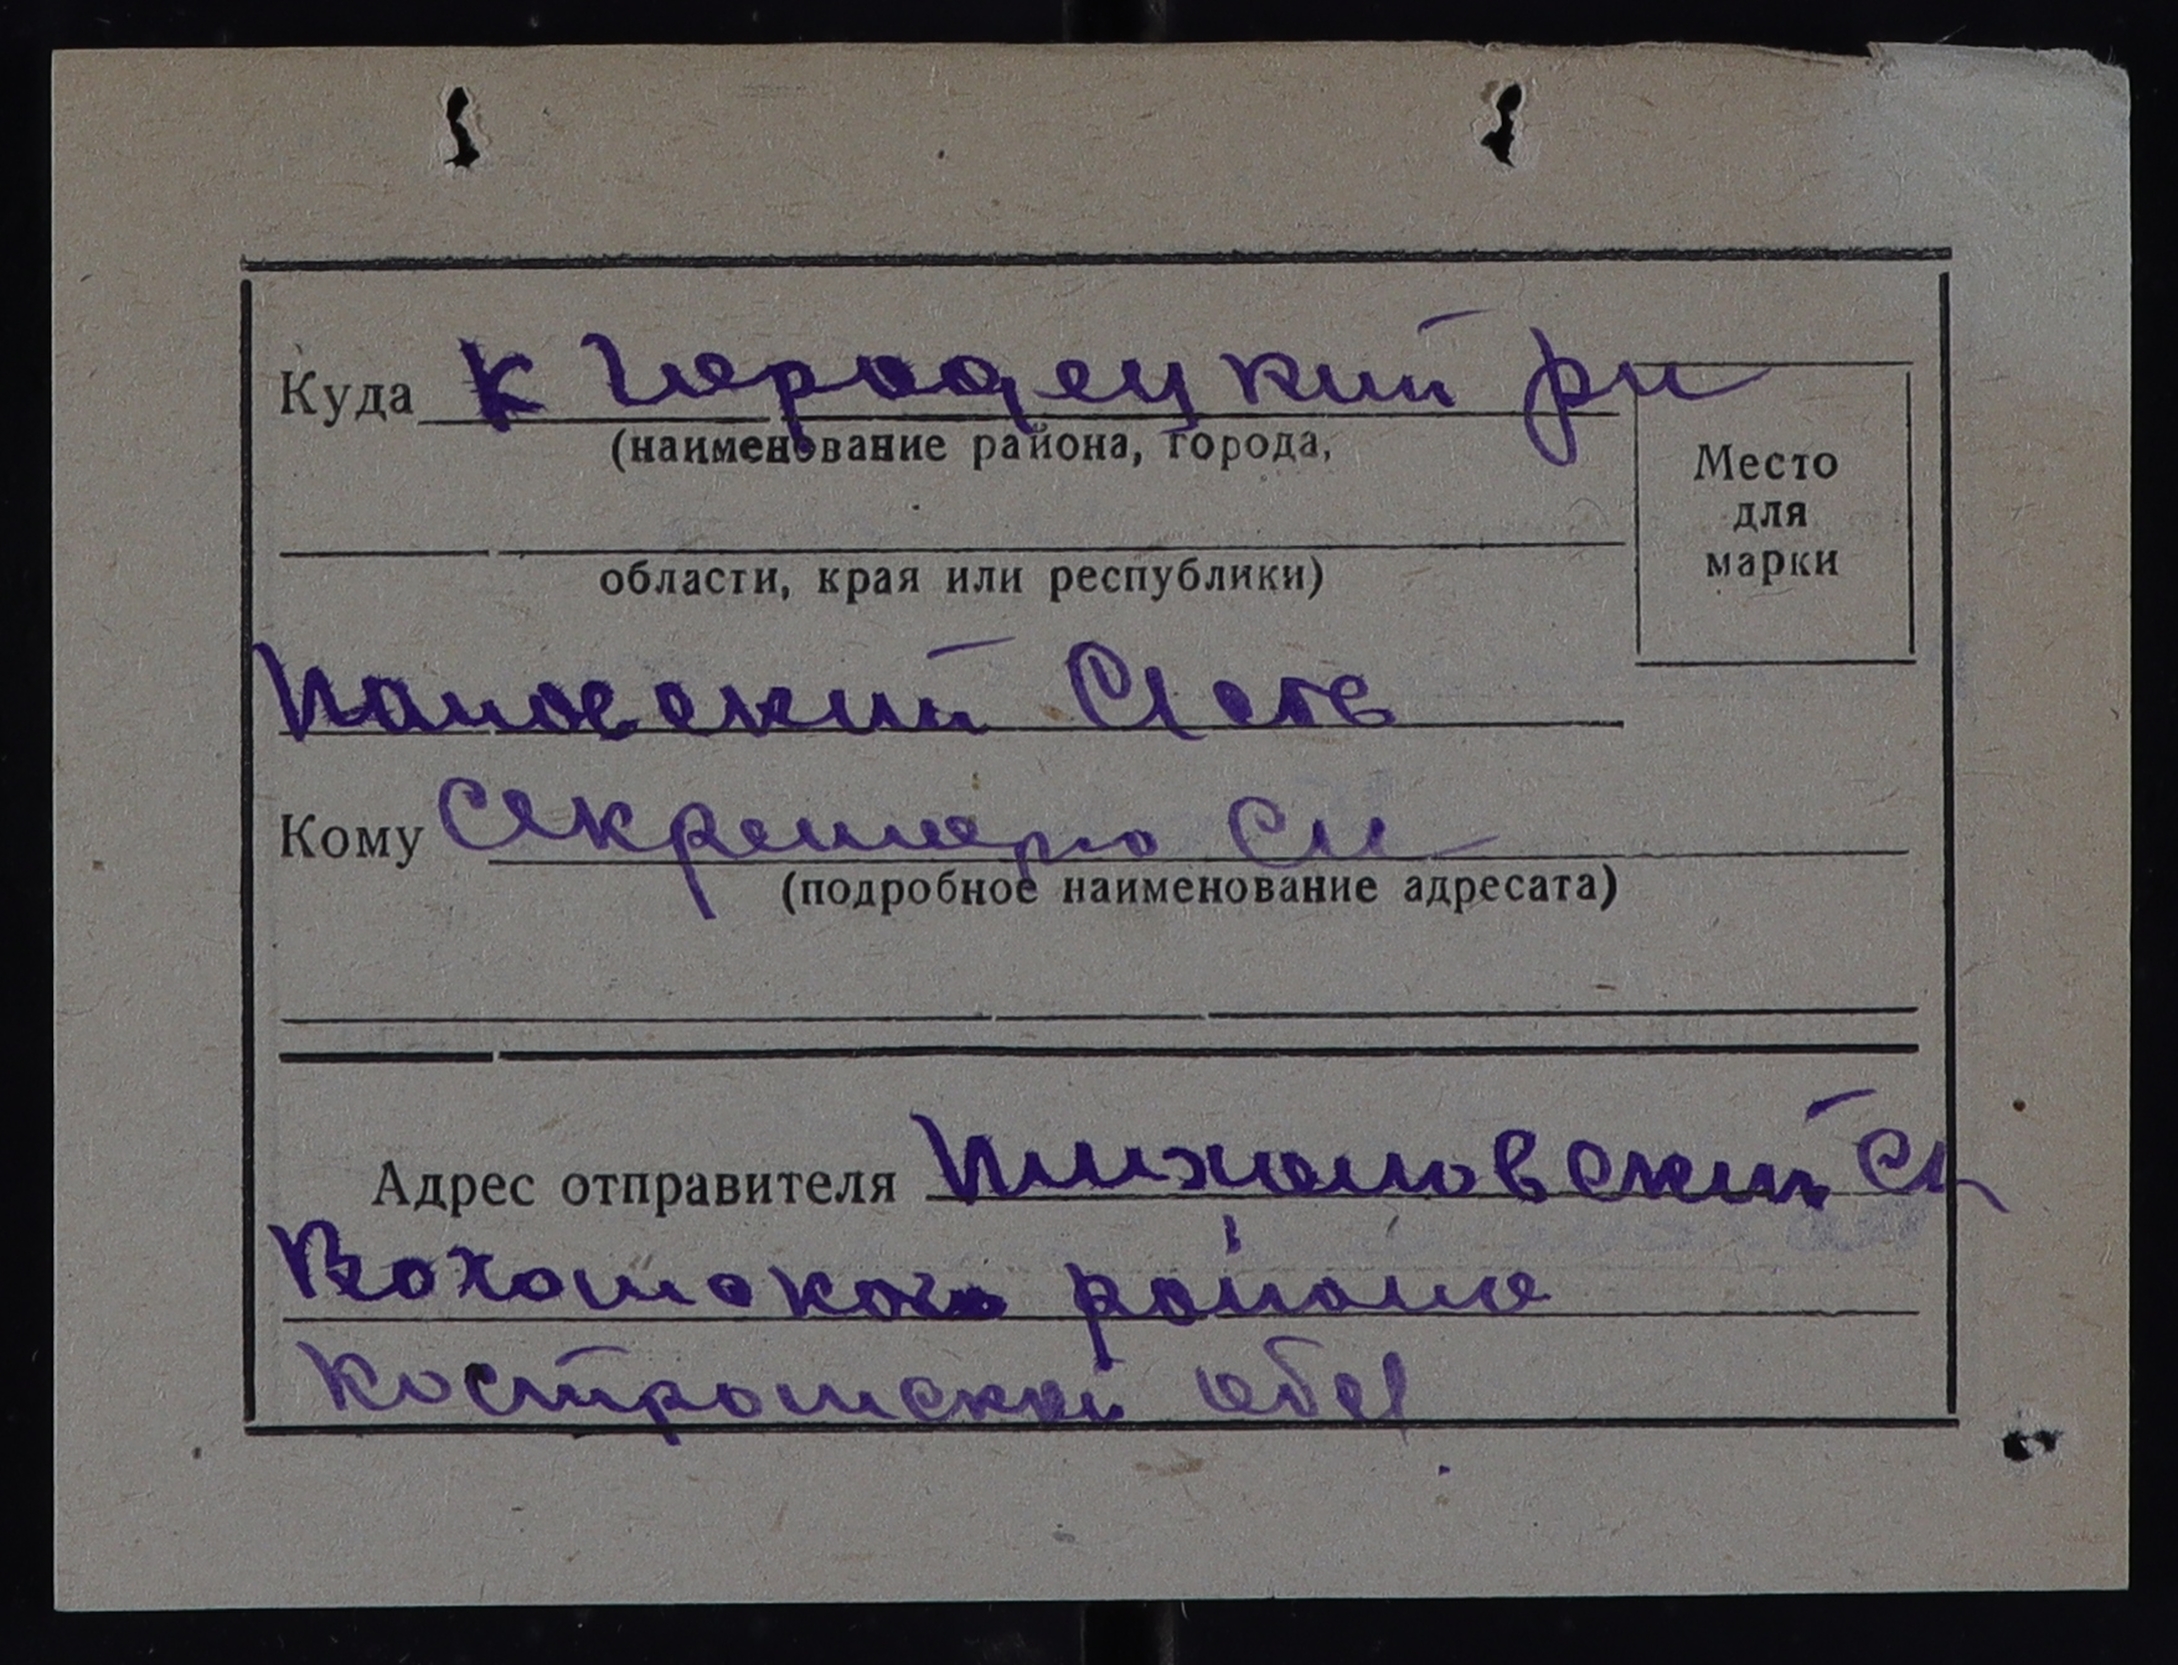 Куда К Городецкий рн
(наименование района, города,
Место
для
марки
области, края или республики)
Кому Секретарю
(подробное наименование адресата)
Адрес отправителя
Вохомского района
Костромской обл